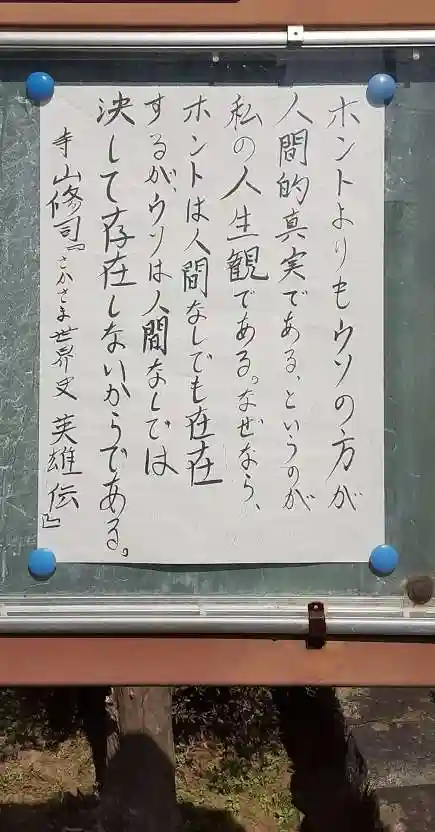 ホントよりもウソの方が
人間的真実である、というのが
私の人生観である。なぜなら、
ホントは人間なしでも在在
するが、ウソは人間なしでは
決して存在しないからである。
寺山修司『さかさま世界史 英雄伝』